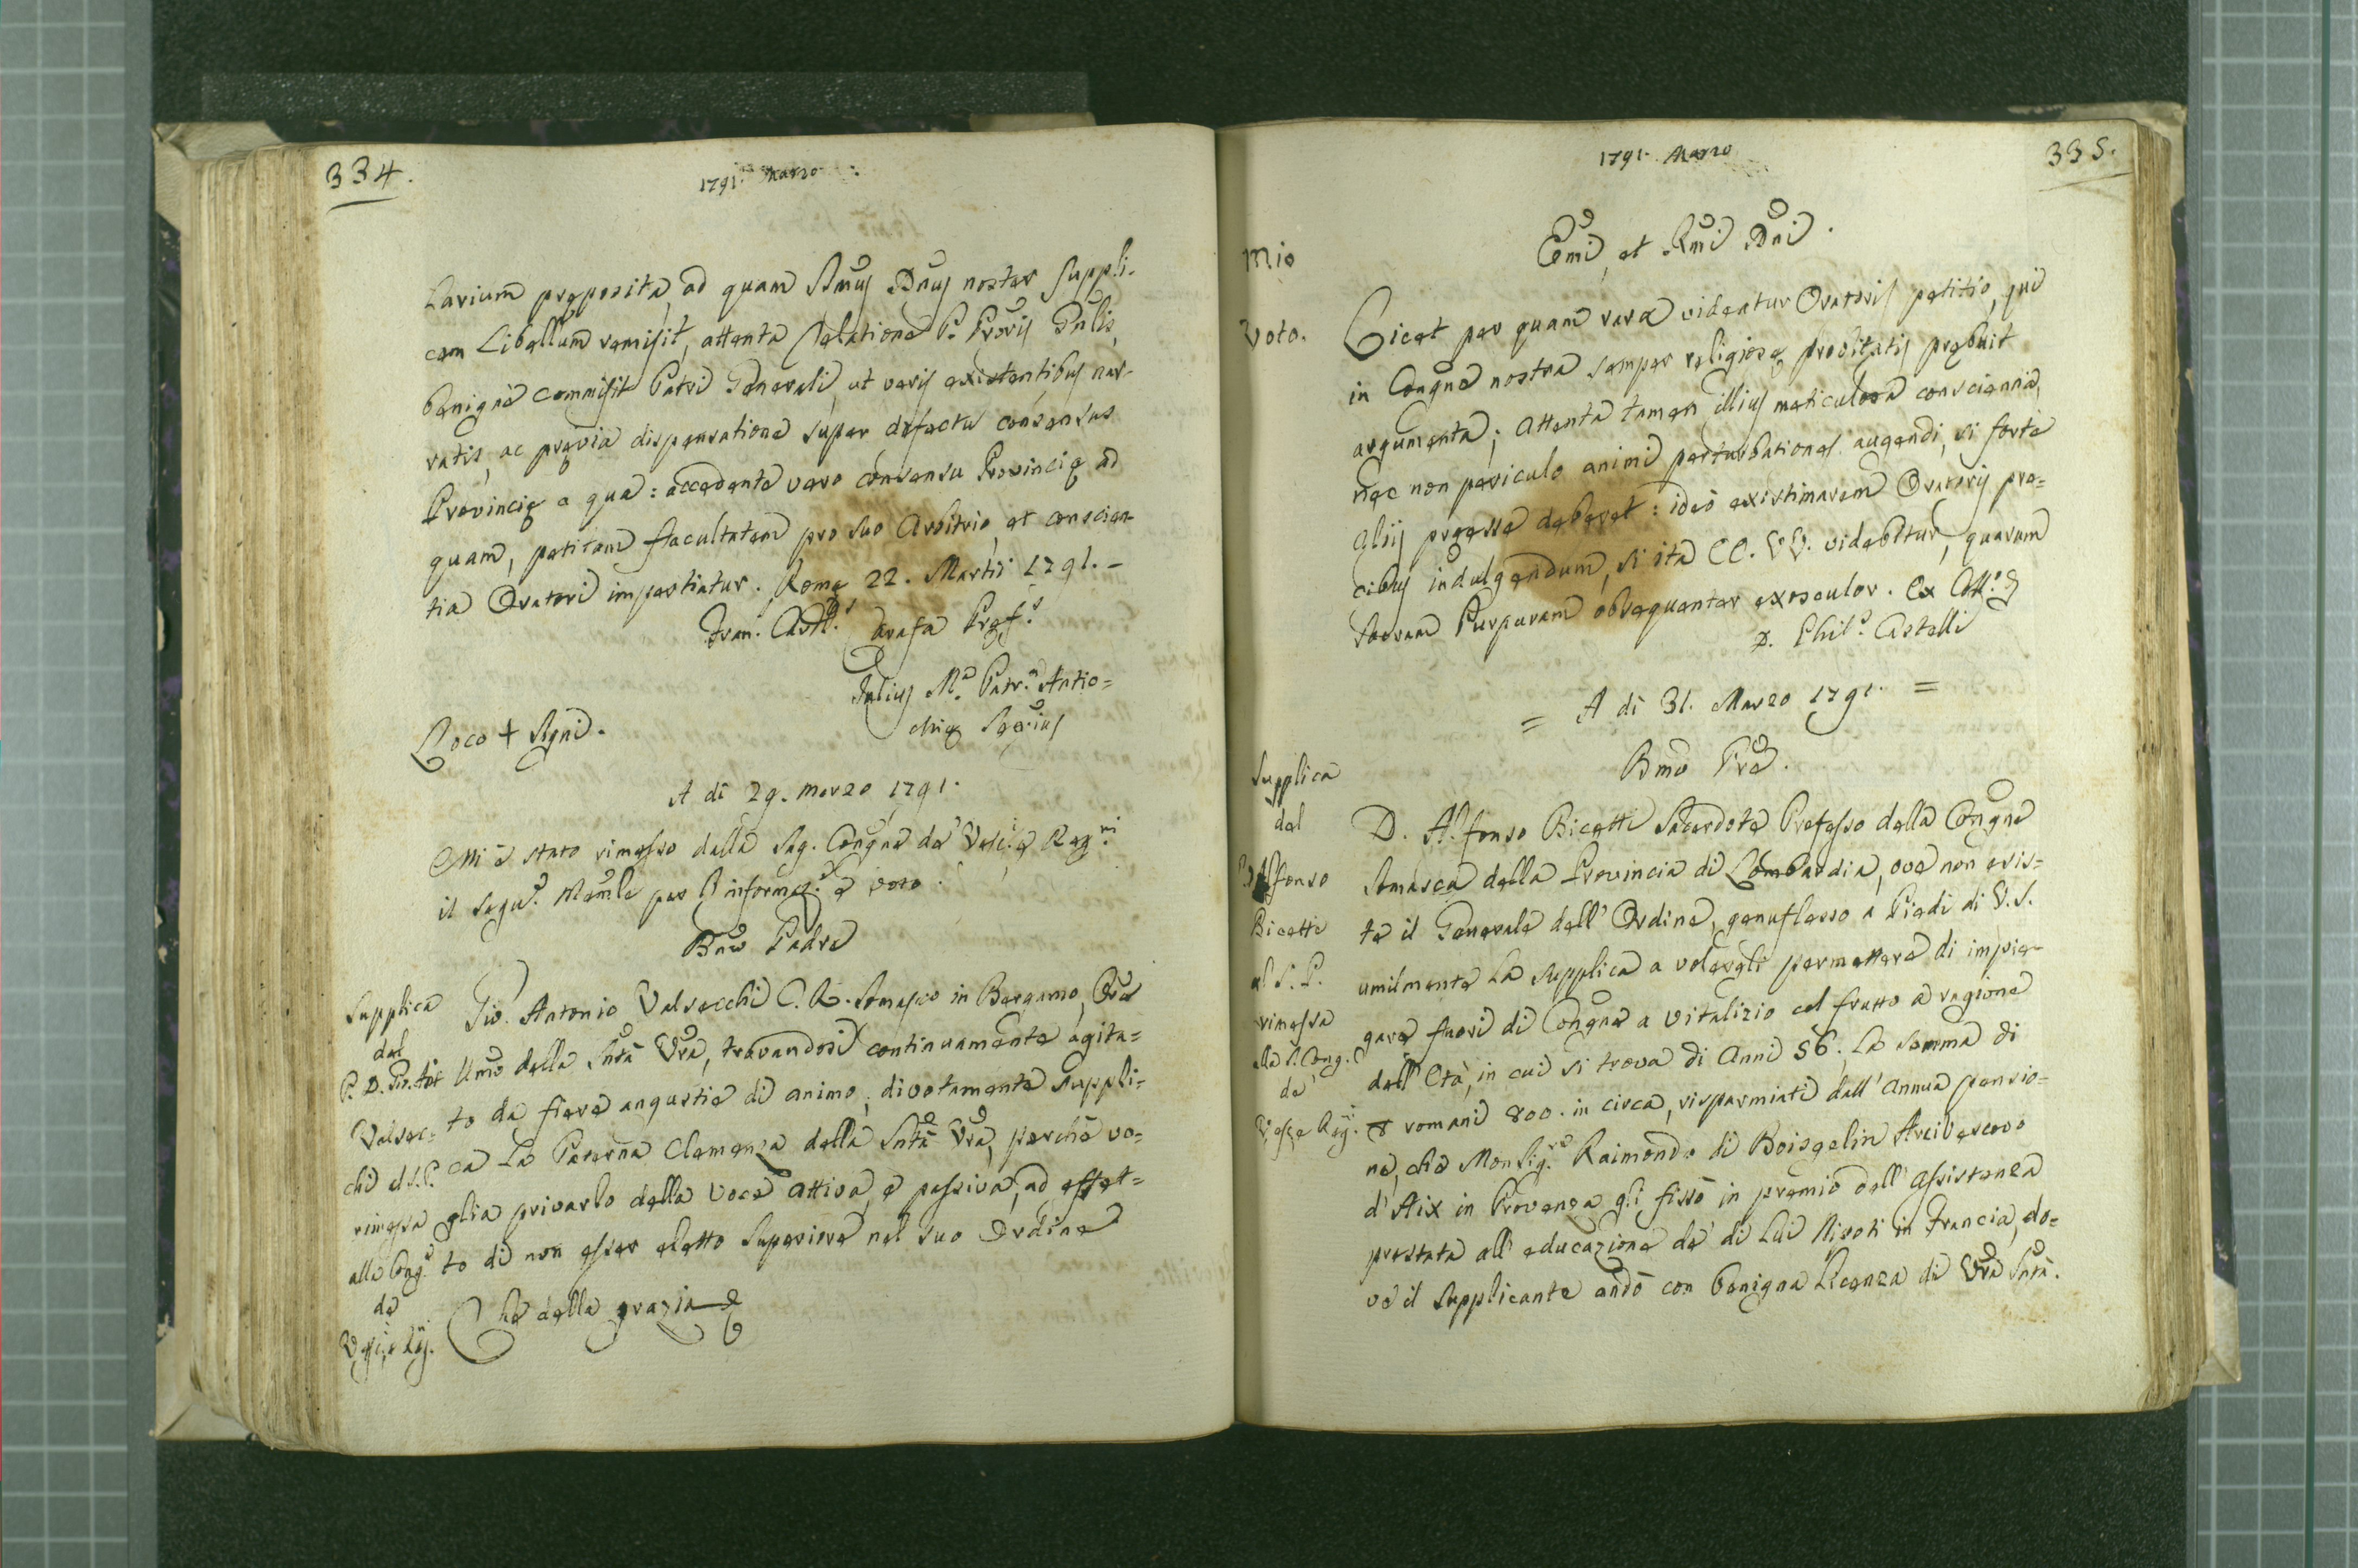 334.
1791. Marzo
larium pręposita, ad quam SSmus Dnus noster suppli-
cem Libellum remisit, attenta Relatione P. Prõris Gnlis,
benigne commisit Patri Generali, ut veris existentibus nar-
ratis, ac pręvia dispensatione super defectu consensus
Provincię a qua: accedente vero consensu Provincię ad
quam, petitam facultatem pro suo arbitrio, et conscien-
tia Oratori impertiatur. Romę 22. Martii 1791. -
Fran. Card.lis Carafa Pręf.s
Julius M.a Patr.a Antio=
chię Sec.rius
Loco + Signi.
A di 29. marzo 1791.
Mi è stato rimesso dalla Sag. Congñe de' Vesc.i e Reg.ri
il segu.e Memle per l'informaz.e e voto.
Bmo Padre
Supplica
del
P. D. Gio. Ant
Valsec=
chi al S.P.
rimessa
alla Cong.e
de
V.essc.i e Reg.
Gio. Antonio Valsecchi C. R. Somasco in Bergamo, Ore
Umo della Sntà Vra, trovandosi continuamente agita=
to da fiere angustie di animo; divotamente suppli=
ca la Paterna Clemenza della Sntà Vra, perchè vo=
glia privarlo della voce attiva, e passiva, ad effet=
to di non esser eletto Superiore nel suo Ordine
Che della grazia
335.
1791. Marzo
Mio
Voto.
Emi, et Rmi Dni.
Licet per quam rara videatur Oratoris petitio, qui
in Congne nostra semper religiosę probitatis prębuit
argumenta; attenta tamen illius meticulosa conscienzia,
nec non periculo animi perturbationes augendi, si forte
aliis pręesse deberet: ideo existimarem Oratoris pre=
cibus indulgendum, si ita EE. VV. videbitur, quarum
Sacram Purpuram obsequenter exosculor. Ex
D. Phil.s Castelli
= A di 31. Marzo 1791. =
Bmo Pre.
Supplica
del
Alfonso
Bicetti
al S. P.
rimessa
alla S. Cong.
de'
V. e Reg.
D. Alfonso Bicetti Sacerdote Professo della Congne
Somasca della Provincia di Lombardia, ove non esis=
te il Generale dell' Ordine, genuflesso a' Piedi di V. S.
umilmente la supplica a volergli permettere di impie-
gare fuori di Congne a vitalizio col frutto a ragione
dell' Età, in cui si trova di Anni 56. la somma di
romani 800. in circa, risparmiati dall' annua pensio=
ne, che Monsig.re Raimondo di Boisgelin Arcivescovo
d' Aix in Provenza gli fissò in premio dell' assistenza
prestata all' educazione de' di Lui Nipoti in Francia, do=
ve il Supplicante andò con benigna licenza di Vra Sntà.